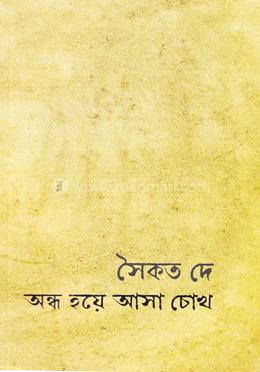 www.rokomari.com
সৈকত দে
অন্ধ হয়ে আসা চোখ